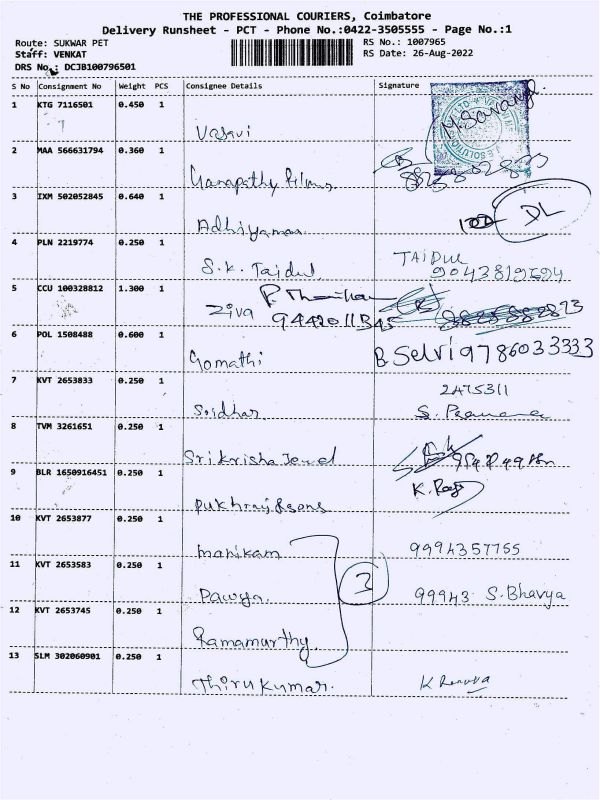 THE PROFESSIONAL COURIERS, Coimbatore
Delivery Runsheet - PCT - Phone No.:0422-3505555 - Page No.:1
Route: SUKWAR PET RS No.: 1007965
Staff: VENKAT RS Date: 26-Aug-2022
DRS No.: DCJB100796501
S No Consignment No Weight PCS Consignee Details Signature
1 KTG 7116501 0.450 1
Vasavi
2 MAA 566631794 0.360 1
Ganapathy Films
3 IXM 502052845 0.640 1
Adhiyaman DL
4 PLN 2219774 0.250 1 TAIDUL
S.K. Taidul
5 CCU 100328812 1.300 1
Ziva
6 POL 1508488 0.600 1
Gomathi B Selvi 9786033333
7 KVT 2653833 0.250 1 2475311
Sridhar
8 TVM 3261651 0.250 1
Sri Krisha Jewel
9 BLR 1650916451 0.250 1 K. Raj
Pukhraj & sons
10 KVT 2653877 0.250 1
manikam 9994357755
11 KVT 2653583 0.250 1
Pavya 99943 S. Bhavya
12 KVT 2653745 0.250 1
Ramamurthy
13 SLM 302060901 0.250 1
Thirukumar